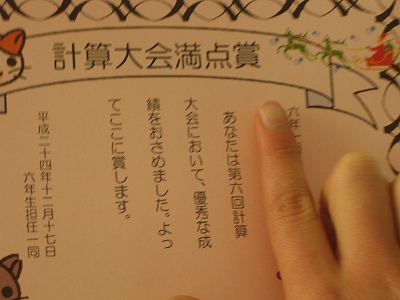 計算大会満点賞
六年
あなたは第六回計算
大会において、優秀な成
績をおさめました。よっ
てここに賞します。
平成二十四年十二月十七日
六年生担任一同